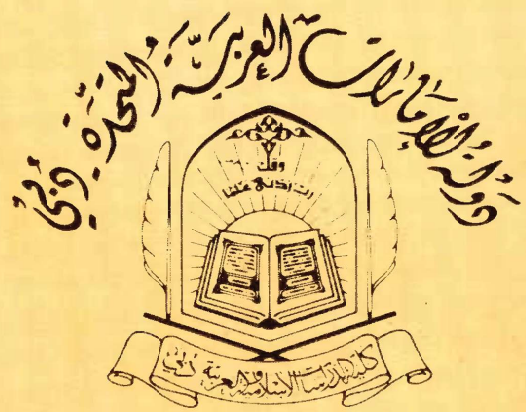 دولة الإمارات العربية المتحدة دبي
وقل
رب زدني علما
كلية الدراسات الإسلامية والعربية دبي